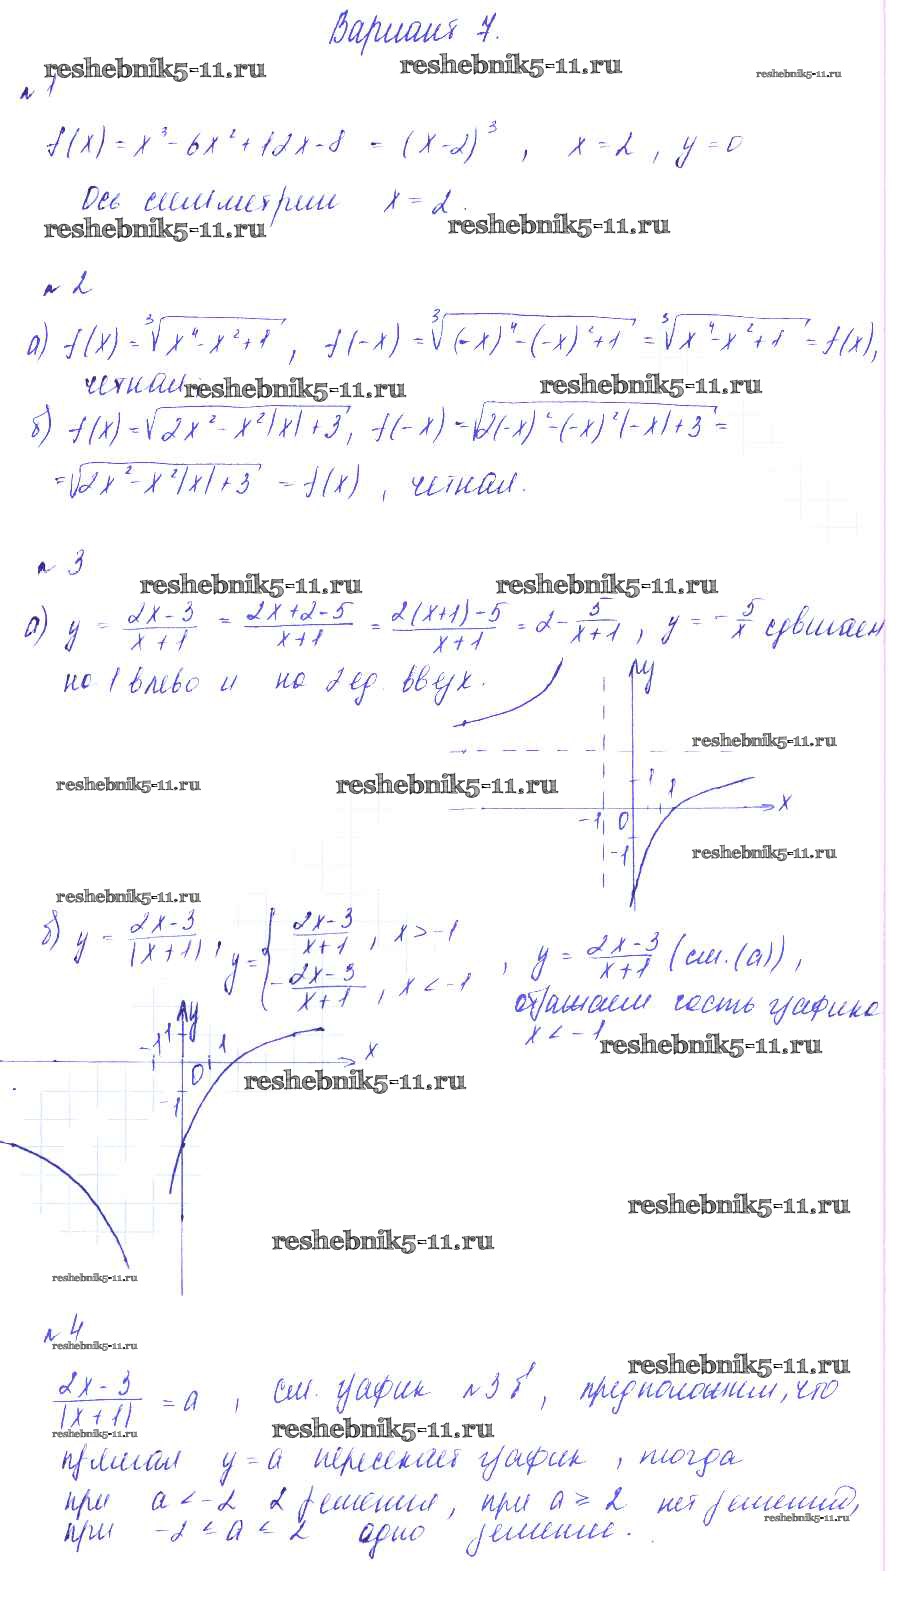 Вариант 7.
reshebnik5-11.ru reshebnik5-11.ru reshebnik5-11.ru
№ 1
f(x) = x³ - 6x² + 12x - 8 = (x-2)³, x = 2, y = 0
Ось симметрии x = 2.
reshebnik5-11.ru reshebnik5-11.ru
№ 2
а) f(x) = ∛(x⁴ - x² + 1), f(-x) = ∛((-x)⁴ - (-x)² + 1) = ∛(x⁴ - x² + 1) = f(x),
четная. reshebnik5-11.ru reshebnik5-11.ru
б) f(x) = √(2x² - x²|x| + 3), f(-x) = √(2(-x)² - (-x)²|-x| + 3) =
= √(2x² - x²|x| + 3) = f(x), четная.
№ 3
reshebnik5-11.ru reshebnik5-11.ru
а) y = (2x-3)/(x+1) = (2x+2-5)/(x+1) = (2(x+1)-5)/(x+1) = 2 - 5/(x+1), y = -5/x сдвигаем
на 1 влево и на 2 ед. вверх.
y
reshebnik5-11.ru
reshebnik5-11.ru reshebnik5-11.ru
1 1 x
-1 0
-1
reshebnik5-11.ru
reshebnik5-11.ru
б) y = (2x-3)/|x+1|, y = { (2x-3)/(x+1), x > -1
-(2x-3)/(x+1), x < -1, y = (2x-3)/(x+1) (см. (а)),
отражаем часть графика
x < -1
reshebnik5-11.ru
y
-1 1 1 x
0
reshebnik5-11.ru
-1
reshebnik5-11.ru
reshebnik5-11.ru
reshebnik5-11.ru
№ 4
reshebnik5-11.ru
reshebnik5-11.ru
(2x-3)/|x+1| = a, см. график №3 б, предположим, что
reshebnik5-11.ru reshebnik5-11.ru
прямая y = a пересекает график, тогда
при a < -2 2 решения, при a ≥ 2 нет решений,
reshebnik5-11.ru
при -2 ≤ a < 2 одно решение.